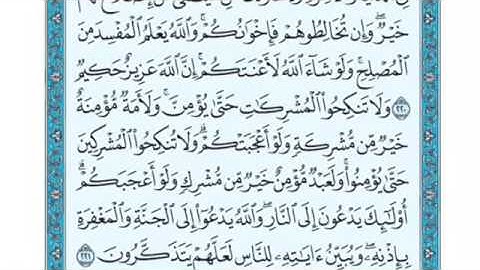 خَيْرٌ ۖ وَإِن تُخَالِطُوهُمْ فَإِخْوَٰنُكُمْ ۚ وَٱللَّهُ يَعْلَمُ ٱلْمُفْسِدَ مِنَ
ٱلْمُصْلِحِ ۚ وَلَوْ شَآءَ ٱللَّهُ لَأَعْنَتَكُمْ ۚ إِنَّ ٱللَّهَ عَزِيزٌ حَكِيمٌ
٢٢٠ وَلَا تَنكِحُوا۟ ٱلْمُشْرِكَٰتِ حَتَّىٰ يُؤْمِنَّ ۚ وَلَأَمَةٌ مُّؤْمِنَةٌ
خَيْرٌ مِّن مُّشْرِكَةٍ وَلَوْ أَعْجَبَتْكُمْ ۗ وَلَا تُنكِحُوا۟ ٱلْمُشْرِكِينَ
حَتَّىٰ يُؤْمِنُوا۟ ۚ وَلَعَبْدٌ مُّؤْمِنٌ خَيْرٌ مِّن مُّشْرِكٍ وَلَوْ أَعْجَبَكُمْ ۗ
أُو۟لَٰٓئِكَ يَدْعُونَ إِلَى ٱلنَّارِ ۖ وَٱللَّهُ يَدْعُوٓا۟ إِلَى ٱلْجَنَّةِ وَٱلْمَغْفِرَةِ
بِإِذْنِهِۦ ۖ وَيُبَيِّنُ ءَايَٰتِهِۦ لِلنَّاسِ لَعَلَّهُمْ يَتَذَكَّرُونَ ٢٢١